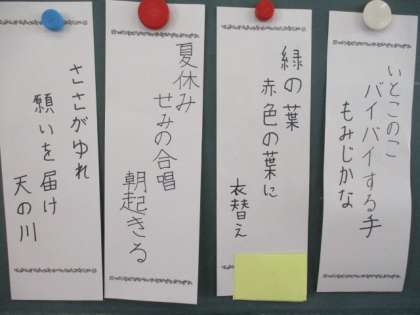 いとこのこ
バイバイする手
もみじかな
緑の葉
赤色の葉に
衣替え
夏休み
せみの合唱
朝起きる
ささがゆれ
願いを届け
天の川